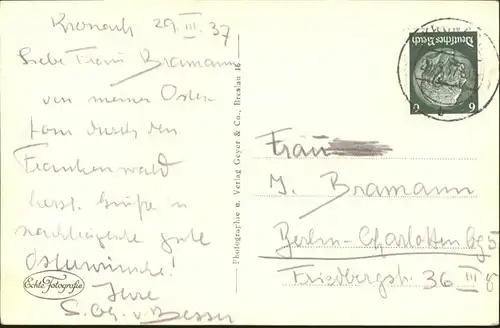 Kronach 29. III. 37
Liebe Frau Bramann
von meiner Oster-
tour durch den
Frankenwald
herzl. Grüße u
nachträgliche gute
Osterwünsche!
Ihre
S. v. Besser
Echte Fotografie
Photographie u. Verlag Geyer & Co., Breslau 16
Deutsches Reich
6 6
Frau
J. Bramann
Berlin-Charlottenbg 5
Friedbergstr. 36 III